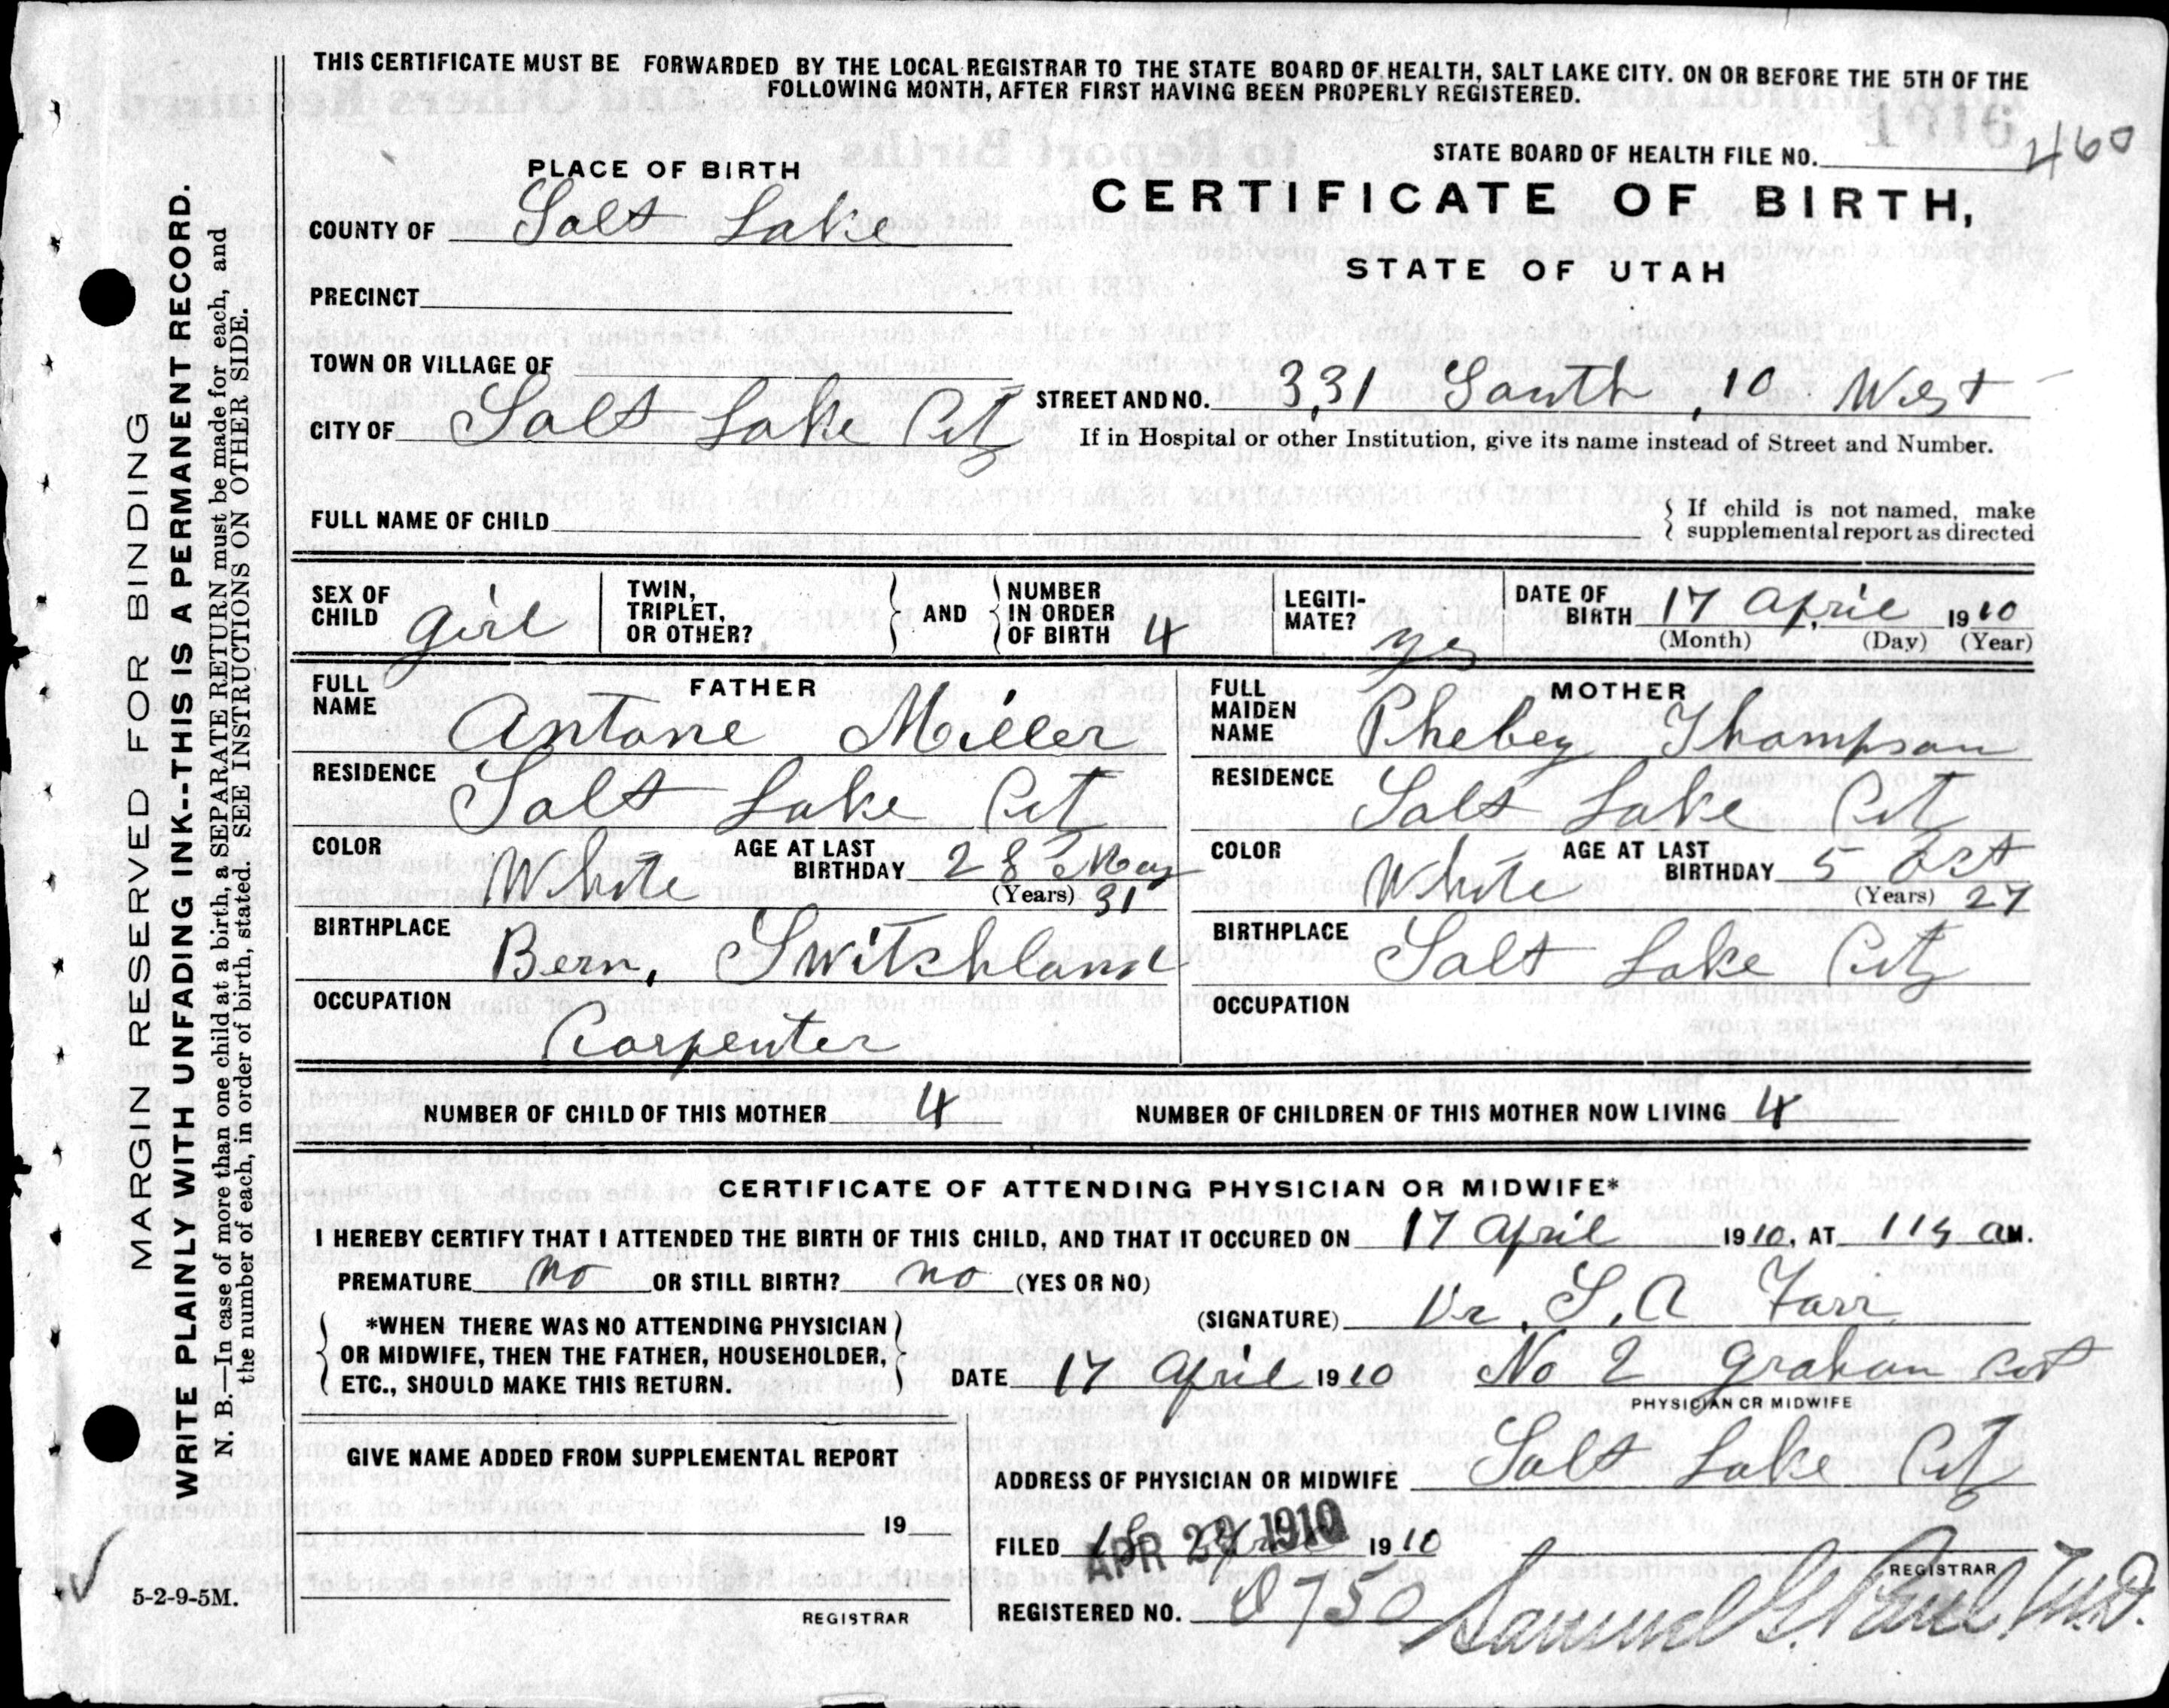 THIS CERTIFICATE MUST BE FORWARDED BY THE LOCAL REGISTRAR TO THE STATE BOARD OF HEALTH, SALT LAKE CITY. ON OR BEFORE THE 5TH OF THE
FOLLOWING MONTH, AFTER FIRST HAVING BEEN PROPERLY REGISTERED.
STATE BOARD OF HEALTH FILE NO. 460
PLACE OF BIRTH
CERTIFICATE OF BIRTH,
COUNTY OF Salt Lake
STATE OF UTAH
PRECINCT
TOWN OR VILLAGE OF
STREET AND NO. 331 South, 10 West
CITY OF Salt Lake Cit
If in Hospital or other Institution, give its name instead of Street and Number.
FULL NAME OF CHILD
If child is not named, make
supplemental report as directed
SEX OF CHILD girl
TWIN, TRIPLET, OR OTHER?
AND
NUMBER IN ORDER OF BIRTH 4
LEGITI-MATE? yes
DATE OF BIRTH 17 April 1910
(Month) (Day) (Year)
FATHER
FULL NAME Antone Miller
RESIDENCE Salt Lake Cit
COLOR White
AGE AT LAST BIRTHDAY 28 May
(Years) 31
BIRTHPLACE Bern, Switshland
OCCUPATION Carpenter
MOTHER
FULL MAIDEN NAME Phebey Thompson
RESIDENCE Salt Lake Cit
COLOR White
AGE AT LAST BIRTHDAY 5 Oct
(Years) 27
BIRTHPLACE Salt Lake City
OCCUPATION
NUMBER OF CHILD OF THIS MOTHER 4
NUMBER OF CHILDREN OF THIS MOTHER NOW LIVING 4
CERTIFICATE OF ATTENDING PHYSICIAN OR MIDWIFE*
I HEREBY CERTIFY THAT I ATTENDED THE BIRTH OF THIS CHILD, AND THAT IT OCCURED ON 17 April 1910, AT 115 a M.
PREMATURE no OR STILL BIRTH? no (YES OR NO)
(SIGNATURE) Dr. S. A Farr
*WHEN THERE WAS NO ATTENDING PHYSICIAN
OR MIDWIFE, THEN THE FATHER, HOUSEHOLDER,
ETC., SHOULD MAKE THIS RETURN.
DATE 17 April 1910
No 2 Graham
PHYSICIAN OR MIDWIFE
GIVE NAME ADDED FROM SUPPLEMENTAL REPORT
19
REGISTRAR
ADDRESS OF PHYSICIAN OR MIDWIFE Salt Lake Cit
FILED 1910
APR 29 1910
REGISTRAR
REGISTERED NO. 8750
Samuel G. Paul, M.D.
5-2-9-5M.
MARGIN RESERVED FOR BINDING
WRITE PLAINLY WITH UNFADING INK--THIS IS A PERMANENT RECORD.
N. B.—In case of more than one child at a birth, a SEPARATE RETURN must be made for each, and
the number of each, in order of birth, stated. SEE INSTRUCTIONS ON OTHER SIDE.